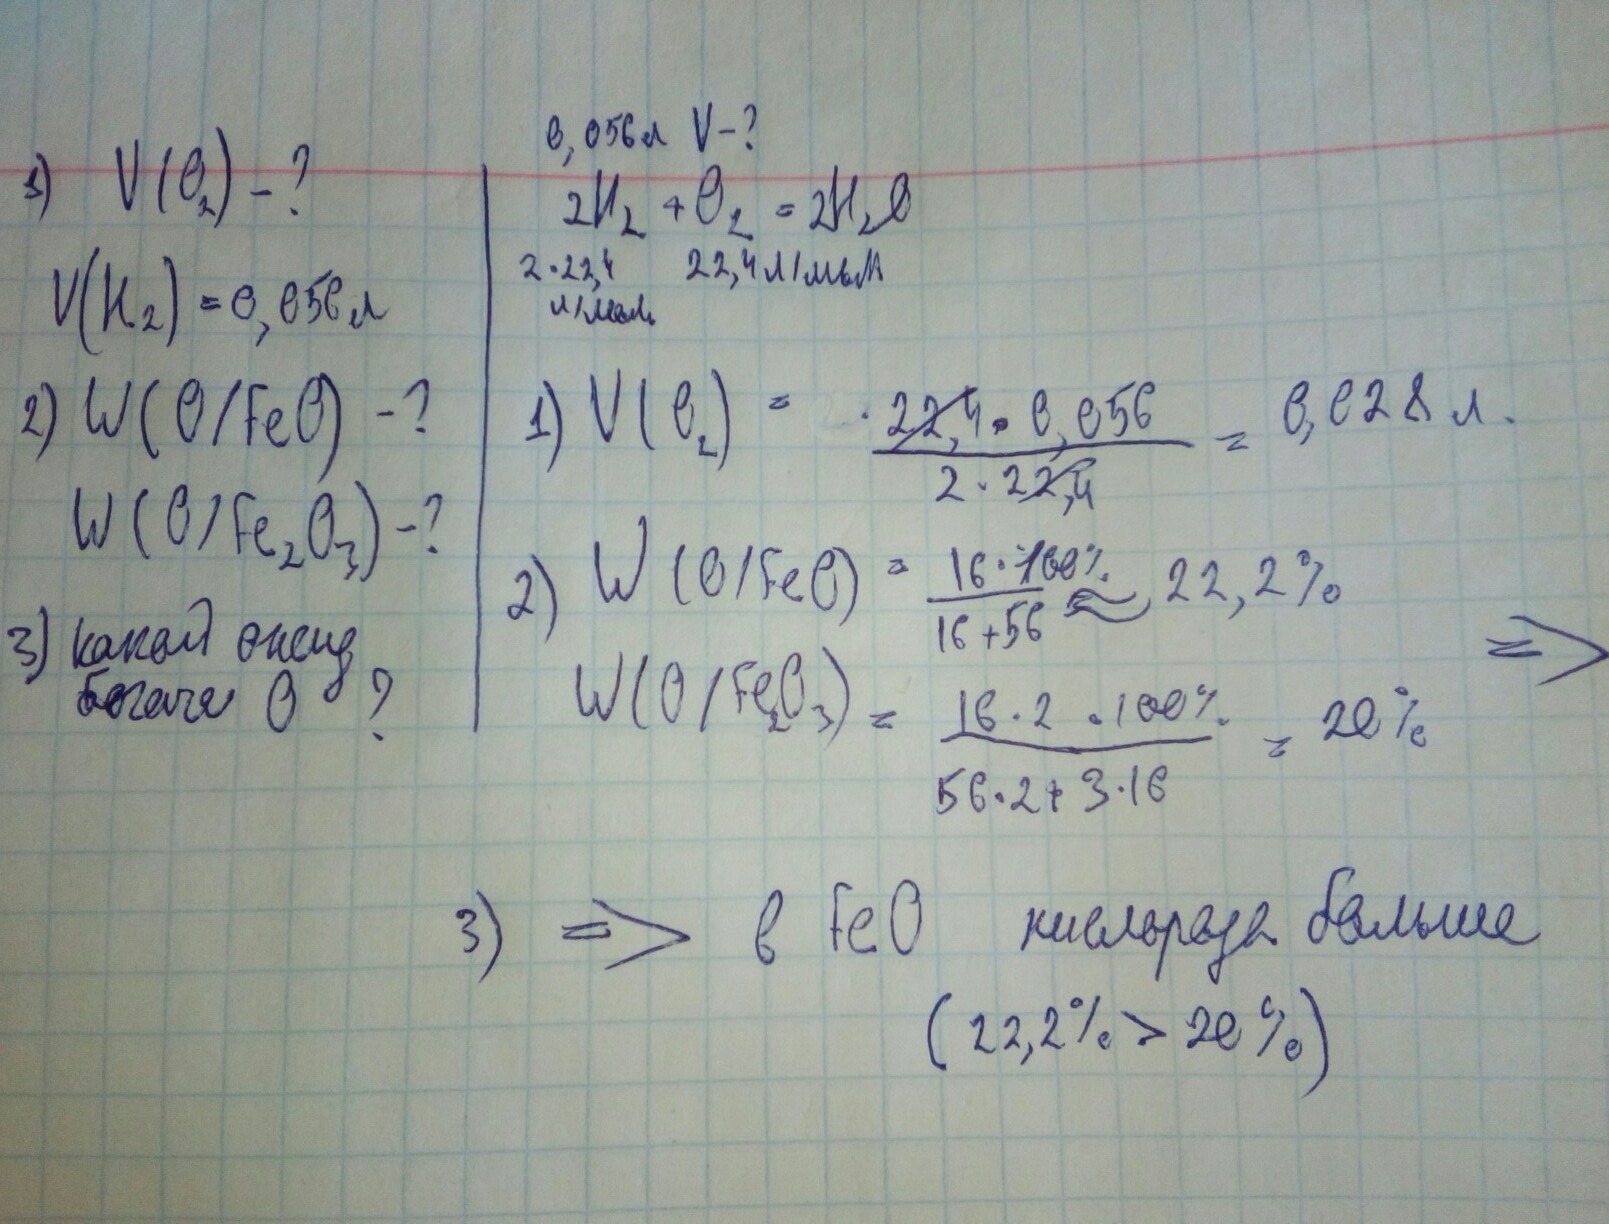 1) V(O₂) - ?
V(H₂) = 0,056 л
2) W(O/FeO) - ?
W(O/Fe₂O₃) - ?
3) какой оксид
богаче O ?
0,056 л V - ?
2H₂ + O₂ = 2H₂O
2·22,4 22,4 л/моль
л/моль
1) V(O₂) = 22,4·0,056 / 2·22,4 = 0,028 л.
2) W(O/FeO) = 16·100% / 16+56 ≈ 22,2%
W(O/Fe₂O₃) = 16·2·100% / 56·2+3·16 = 20% =>
3) => в FeO кислорода больше
(22,2% > 20%)